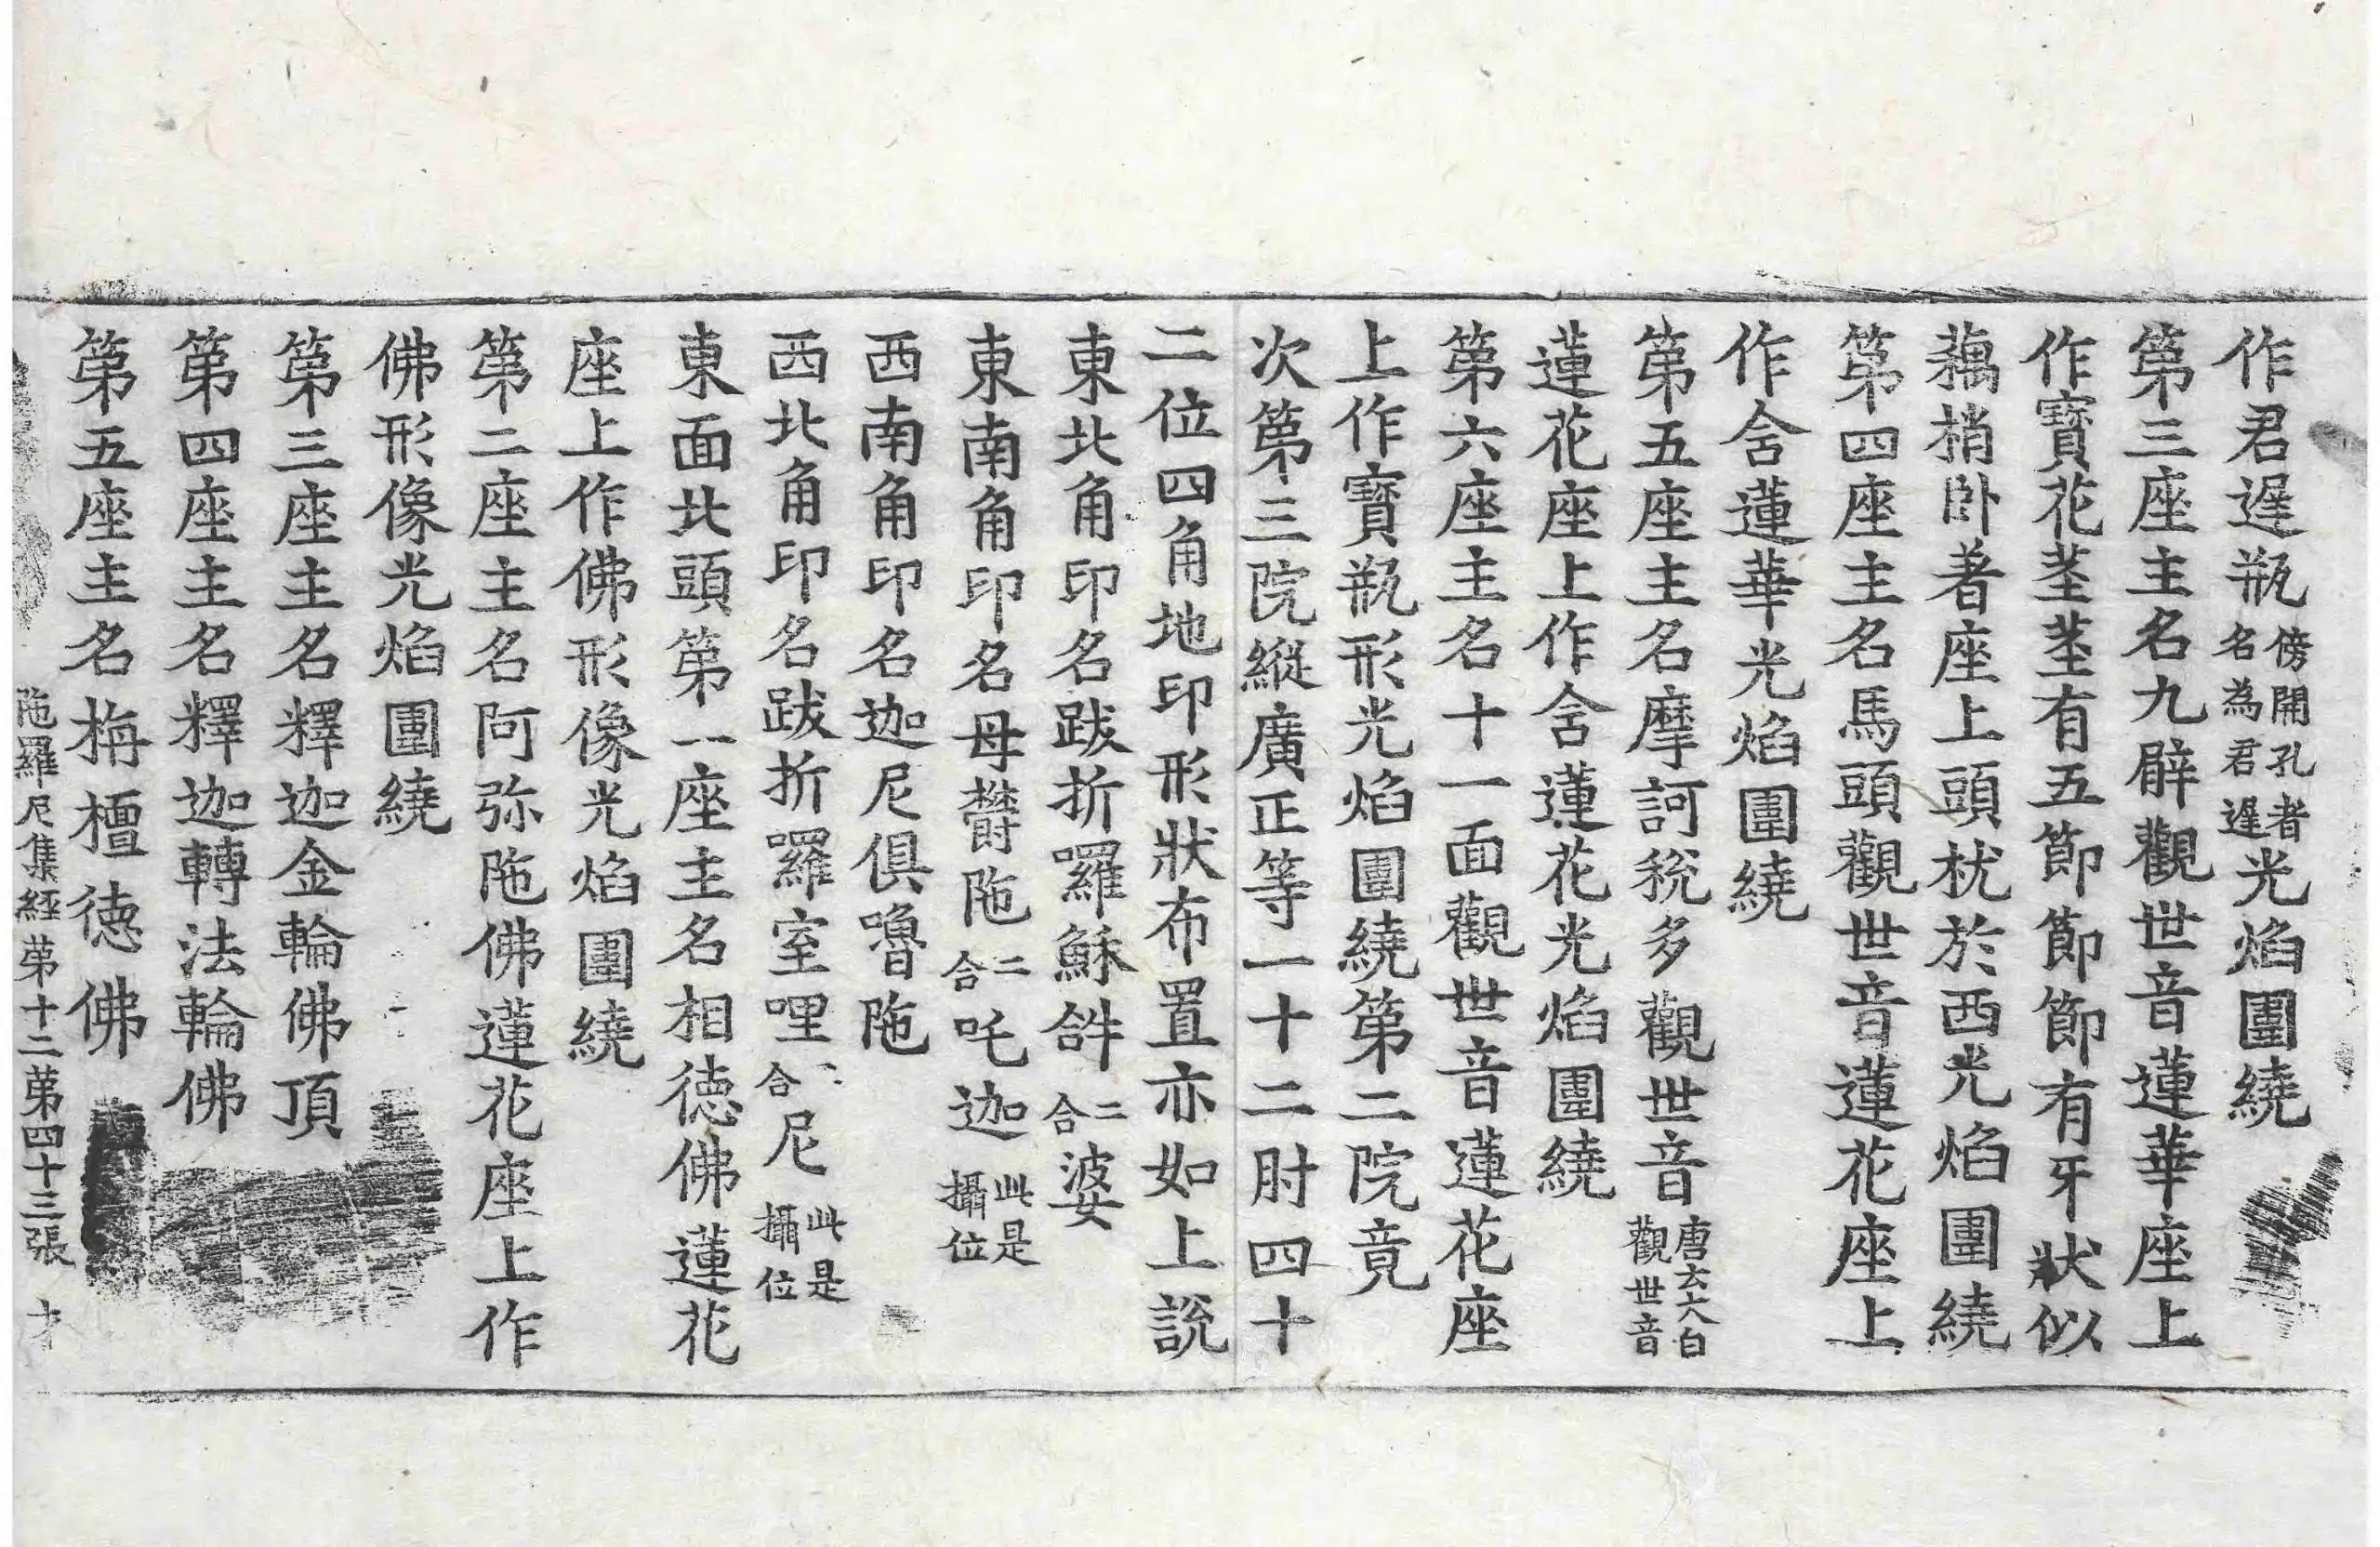 作君遅瓶傍開孔者名為君遅光焰圍繞
第三座主名九臂觀世音蓮華座上
作寶花莖莖有五節節節有牙狀似
藕梢卧著座上頭枕於西光焰圍繞
第四座主名馬頭觀世音蓮花座上
作含蓮華光焰圍繞
第五座主名摩訶稅多觀世音唐玄大白觀世音
蓮花座上作含蓮花光焰圍繞
第六座主名十一面觀世音蓮花座
上作寶瓶形光焰圍繞第二院竟
次第三院縱廣正等一十二肘四十
二位四角地印形狀布置亦如上說
東北角印名跋折囉蘇皤二合婆
東南角印名母欝陁二合吒迦此是攝位
西南角印名迦尼俱嚕陁
西北角印名跋折囉室哩二合尼此是攝位
東面北頭第一座主名相德佛蓮花
座上作佛形像光焰圍繞
第二座主名阿弥陁佛蓮花座上作
佛形像光焰圍繞
第三座主名釋迦金輪佛頂
第四座主名釋迦轉法輪佛
第五座主名栴檀德佛
陁羅尼集經第十二第四十三張 才